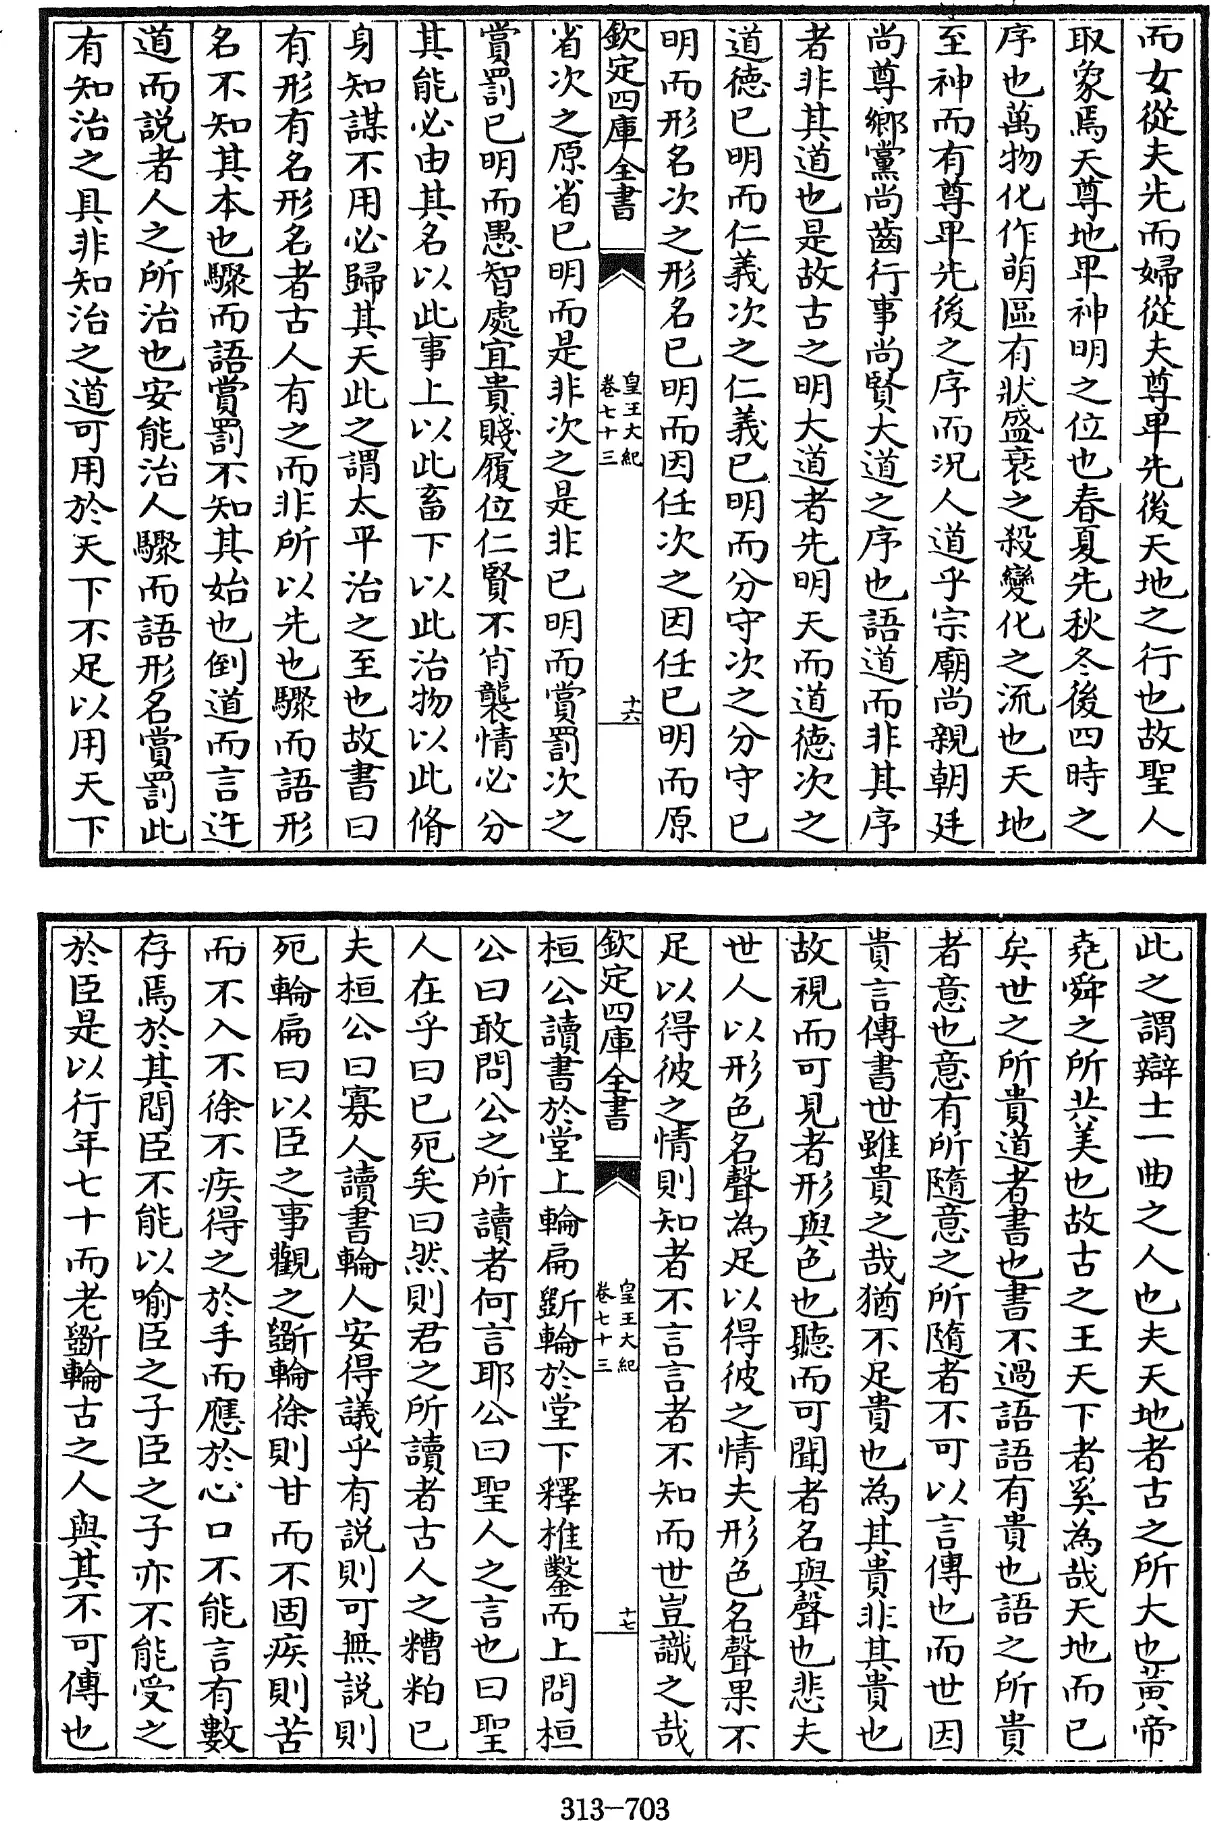 而女從夫先而婦從夫尊卑先後天地之行也故聖人
取象焉天尊地卑神明之位也春夏先秋冬後四時之
序也萬物化作萌區有狀盛衰之殺變化之流也天地
至神而有尊卑先後之序而況人道乎宗廟尚親朝廷
尚尊鄉黨尚齒行事尚賢大道之序也語道而非其序
者非其道也是故古之明大道者先明天而道德次之
道德已明而仁義次之仁義已明而分守次之分守已
明而形名次之形名已明而因任次之因任已明而原
欽定四庫全書
皇王大紀
卷七十三
十六
省次之原省已明而是非次之是非已明而賞罰次之
賞罰已明而愚智處宜貴賤履位仁賢不肖襲情必分
其能必由其名以此事上以此畜下以此治物以此脩
身知謀不用必歸其天此之謂太平治之至也故書曰
有形有名形名者古人有之而非所以先也驟而語形
名不知其本也驟而語賞罰不知其始也倒道而言迕
道而説者人之所治也安能治人驟而語形名賞罰此
有知治之具非知治之道可用於天下不足以用天下
此之謂辯士一曲之人也夫天地者古之所大也黃帝
堯舜之所共美也故古之王天下者奚為哉天地而已
矣世之所貴道者書也書不過語語有貴也語之所貴
者意也意有所隨意之所隨者不可以言傳也而世因
貴言傳書世雖貴之哉猶不足貴也為其貴非其貴也
故視而可見者形與色也聽而可聞者名與聲也悲夫
世人以形色名聲為足以得彼之情夫形色名聲果不
足以得彼之情則知者不言言者不知而世豈識之哉
欽定四庫全書
皇王大紀
卷七十三
十七
桓公讀書於堂上輪扁斵輪於堂下釋椎鑿而上問桓
公曰敢問公之所讀者何言耶公曰聖人之言也曰聖
人在乎曰已死矣曰然則君之所讀者古人之糟粕已
夫桓公曰寡人讀書輪人安得議乎有説則可無説則
死輪扁曰以臣之事觀之斵輪徐則甘而不固疾則苦
而不入不徐不疾得之於手而應於心口不能言有數
存焉於其間臣不能以喻臣之子臣之子亦不能受之
於臣是以行年七十而老斵輪古之人與其不可傳也
313-703